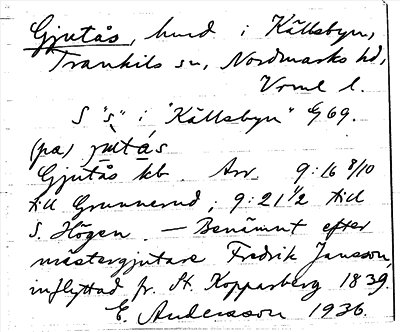 Gjutås, hund i Källsbyn,
Trankils sn, Nordmarks hd,
Vrml l.
S "s" i "Källsbyn" G 69.
(på) jutás
Gjutås kb. Arr. 9:16 8/10
till Grunnerud, 9:21 1/2 till
S. Högen. — Benämnt efter
mästergjutare Fredrik Jansson,
inflyttad fr. St. Kopparberg 1839.
E. Andersson 1936.